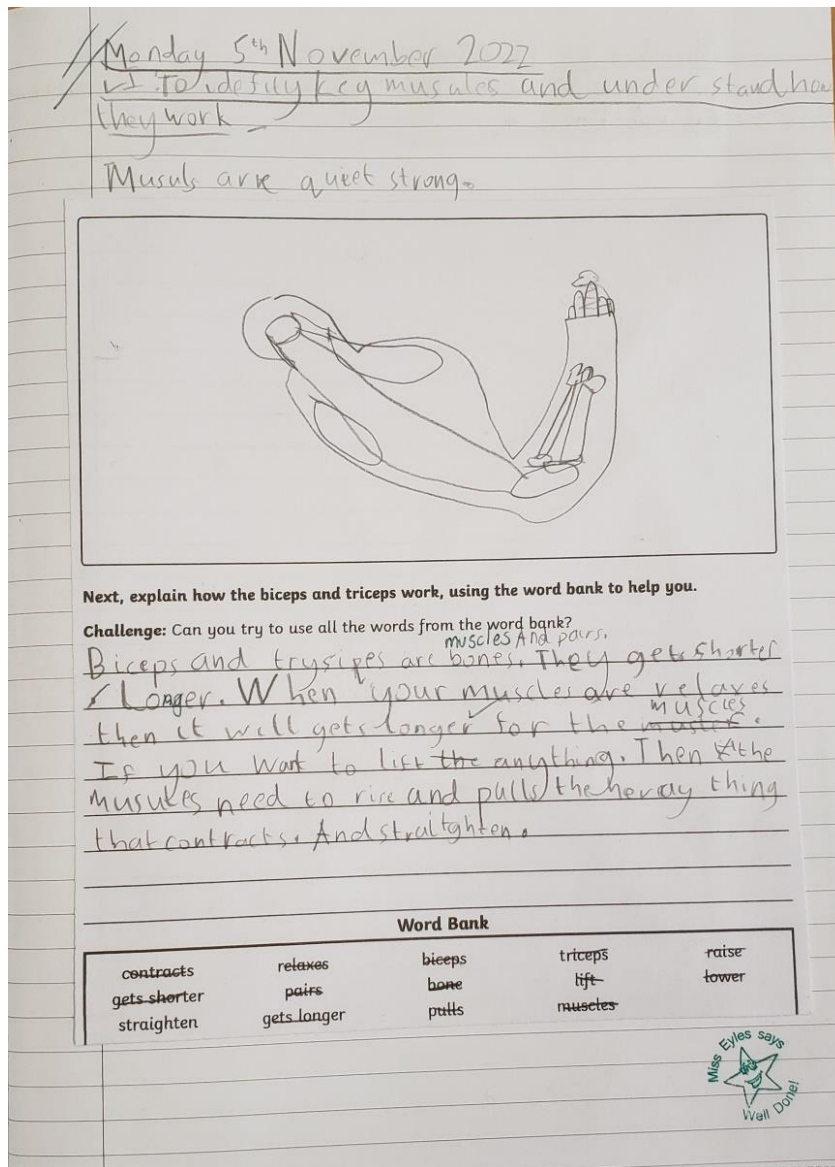 Monday 5th November 2022
LI To idefity key musules and under stand how
they work
Musuls arre quieet strong.
Next, explain how the biceps and triceps work, using the word bank to help you.
Challenge: Can you try to use all the words from the word bank?
muscles And pairs.
Biceps and trysipes are bones. They gets shorter
/ Longer. When your muscles are relaxes
then it will gets longer for the muscles.
If you want to lift the anything. Then the
musukes need to rise and pulls the heray thing
that contracts. And straitghten.
Word Bank
contracts relaxes biceps triceps raise
gets shorter pairs bone lift lower
straighten gets longer pulls muscles
Miss Eyles says
Well Done!